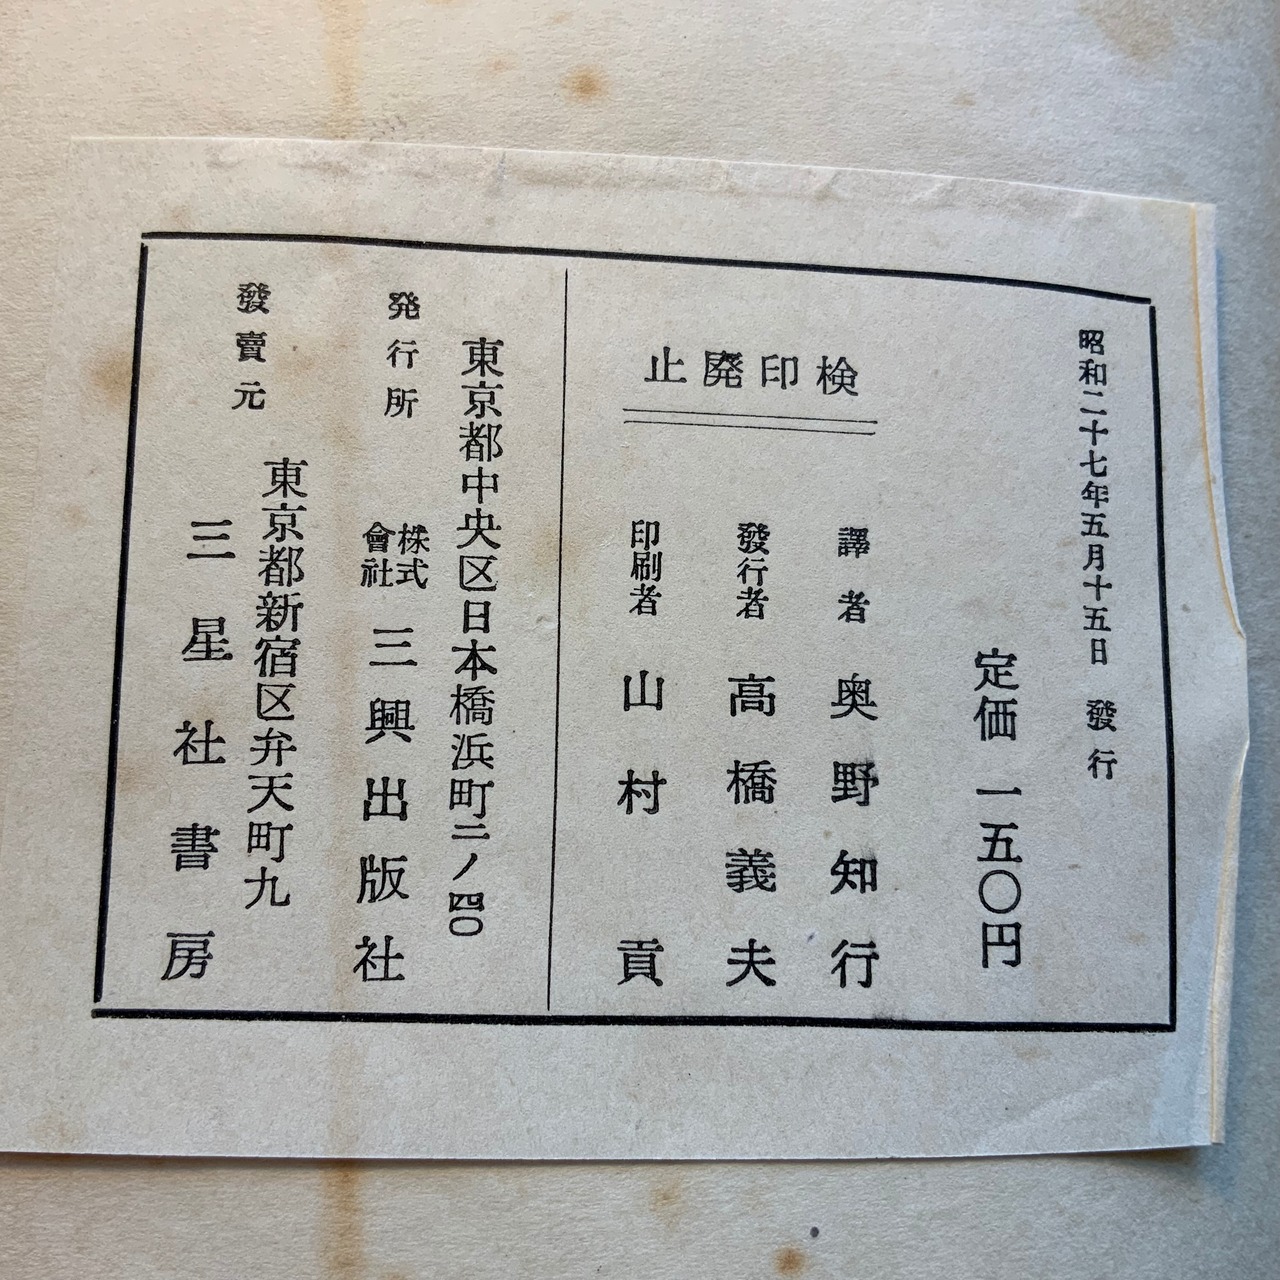 昭和二十七年五月十五日 發行
定価 一五〇円
検印廃止
譯者 奥野知行
發行者 高橋義夫
印刷者 山村貢
東京都中央区日本橋浜町二ノ四〇
発行所 株式會社 三興出版社
東京都新宿区弁天町九
發賣元 三星社書房